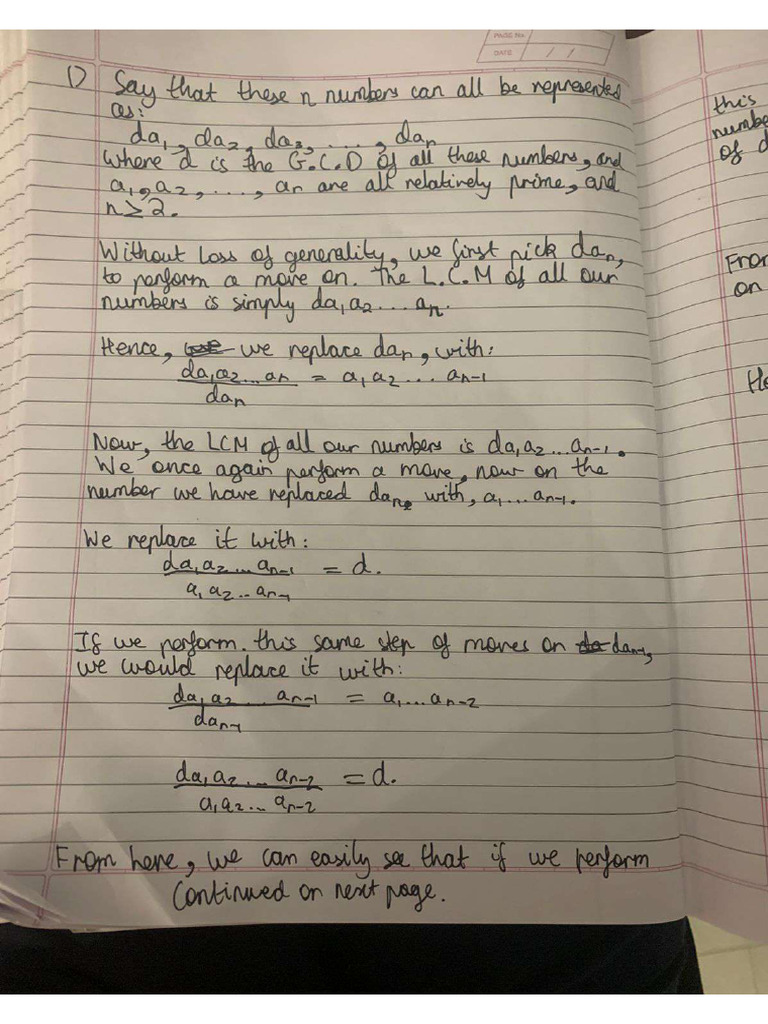 PAGE No.
DATE / /
1) Say that these n numbers can all be represented
as:
da₁, da₂, da₃, ..., daₙ
where d is the G.C.D of all these numbers, and
a₁, a₂, ..., aₙ are all relatively prime, and
n ≥ 2.
Without loss of generality, we first pick daₙ,
to perform a move on. The L.C.M of all our
numbers is simply da₁a₂...aₙ.
Hence, we replace daₙ, with:
da₁a₂...aₙ = a₁a₂...aₙ₋₁
daₙ
Now, the LCM of all our numbers is da₁a₂...aₙ₋₁.
We once again perform a move, now on the
number we have replaced daₙ with, a₁...aₙ₋₁.
We replace it with:
da₁a₂...aₙ₋₁ = d.
a₁a₂..aₙ₋₁
If we perform this same step of moves on daₙ₋₁,
we would replace it with:
da₁a₂...aₙ₋₁ = a₁...aₙ₋₂
daₙ₋₁
da₁a₂...aₙ₋₂ = d.
a₁a₂...aₙ₋₂
From here, we can easily see that if we perform
Continued on next page.
this
numbe
of d
From
on
He